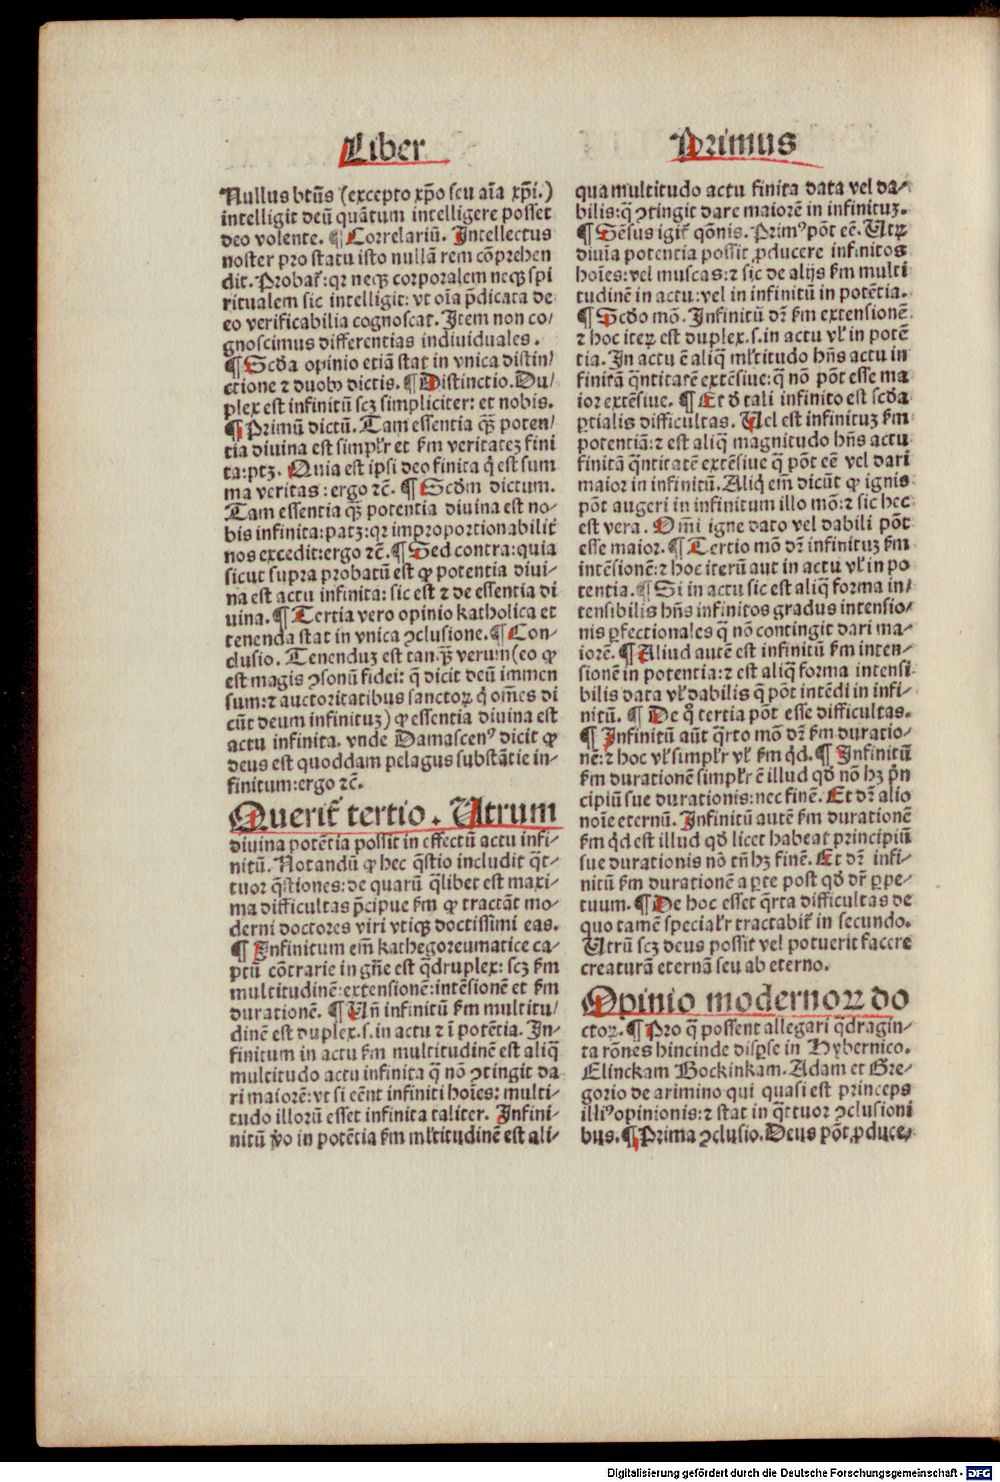 Liber
Primus
Nullus btũs (excepto xp̃o seu aĩa xp̃i.)
intelligit deũ quãtum intelligere posset
deo volente. ¶ Correlariũ. Intellectus
noster pro statu isto nullã rem cõprehen
dit. Probat᷑: qꝛ neqꝫ corporalem neqꝫ spi
ritualem sic intelligit: vt oĩa p̃dicata de
eo verificabilia cognoscat. Item non co⸗
gnoscimus differentias indiuiduales.
¶ Scd̃a opinio etiã stat in vnica distin⸗
ctione ⁊ duobꝰ dictis. ¶ Distinctio. Du⸗
plex est infinitũ scꝫ simpliciter: et nobis.
¶ Primũ dictũ. Tam essentia qꝫ̃ poten⸗
tia diuina est simpl̓r et ẜm veritateꝫ fini
ta: ptꝫ. Quia est ipsi deo finita q̇ est sum
ma veritas: ergo ⁊c̃. ¶ Scd̓m dictum.
Tam essentia qꝫ̃ potentia diuina est no⸗
bis infinita: patꝫ: qꝛ improportionabilit̓
nos excedit: ergo ⁊c̃. ¶ Sed contra: quia
sicut supra probatũ est ꝙ potentia diui⸗
na est actu infinita: sic est ⁊ de essentia di
uina. ¶ Tertia vero opinio katholica et
tenenda stat in vnica ꝯclusione. ¶ Con⸗
clusio. Tenenduꝫ est tanqꝫ̃ verum (eo ꝙ
est magis ꝯsonũ fidei: q̃ dicit deũ immen
sum: ⁊ auctoritatibus sanctoꝝ q̇ om̃es di
cũt deum infinituꝫ) ꝙ essentia diuina est
actu infinita. vnde Damascenꝰ dicit ꝙ
deus est quoddam pelagus substãtie in⸗
finitum: ergo ⁊c̃.
Querit᷑ tertio. Utrum
diuina potẽtia possit in effectũ actu infi⸗
nitũ. Notandũ ꝙ hec q̃stio includit q̃t⸗
tuor q̃stiones: de quarũ q̃libet est maxi⸗
ma difficultas p̃cipue ẜm ꝙ tractãt mo⸗
derni doctores viri vtiqꝫ doctissimi eas.
¶ Infinitum em̃ kathegoreumatice ca⸗
ptũ cõtrarie in gñe est q̃druplex: scꝫ ẜm
multitudinẽ: extensionẽ: intẽsionẽ et ẜm
durationẽ. ¶ Uñ infinitũ ẜm multitu⸗
dinẽ est duplex. s. in actu ⁊ ĩ potẽtia. In⸗
finitum in actu ẜm multitudinẽ est aliq̃
multitudo actu infinita q̃ nõ ꝯtingit da
ri maiorẽ: vt si eẽnt infiniti hoĩes: multi⸗
tudo illorũ esset infinita taliter. Infini⸗
nitũ ṽo in potẽtia ẜm ml̓titudinẽ est ali⸗
qua multitudo actu finita data vel da⸗
bilis: q̃ ꝯtingit dare maiorẽ in infinituꝫ.
¶ Sẽsus igit᷑ qõnis. Primꝰ põt eẽ. Utꝝ
diuĩa potentia possit ꝓducere infinitos
hoĩes: vel muscas: ⁊ sic de alijs ẜm multi
tudinẽ in actu: vel in infinitũ in potẽtia.
¶ Scd̓o mõ. Infinitũ dr̃ ẜm extensionẽ
⁊ hoc iteꝝ est duplex. s. in actu vl̓ in potẽ
tia. In actu ẽ aliq̃ ml̓titudo hñs actu in
finitã q̃ntitatẽ extẽsiue: q̃ nõ põt esse ma
ior extẽsiue. ¶ Et d̓ tali infinito est scd̓a
ꝑtialis difficultas. Uel est infinituꝫ ẜm
potentiã: ⁊ est aliq̃ magnitudo hñs actu
finitã q̃ntitatẽ extẽsiue q̃ põt eẽ vel dari
maior in infinitũ. Aliq̇ em̃ dicũt ꝙ ignis
põt augeri in infinitum illo mõ: ⁊ sic hec
est vera. Om̃i igne dato vel dabili põt
esse maior. ¶ Tertio mõ dr̃ infinituꝫ ẜm
intẽsionẽ: ⁊ hoc iterũ aut in actu vl̓ in po
tentia. ¶ Si in actu sic est aliq̃ forma in⸗
tensibilis hñs infinitos gradus intensio⸗
nis ꝑfectionales q̃ nõ contingit dari ma⸗
iorẽ. ¶ Aliud autẽ est infinitũ ẜm inten⸗
sionẽ in potentia: ⁊ est aliq̃ forma intensi
bilis data vl̓ dabilis q̃ põt intẽdi in infi⸗
nitũ. ¶ De q̊ tertia põt esse difficultas.
¶ Infinitũ aũt q̃rto mõ dr̃ ẜm duratio⸗
nẽ: ⁊ hoc vl̓ simpl̓r vl̓ ẜm q̇d. ¶ Infinitũ
ẜm durationẽ simpl̓r ẽ illud qd̓ nõ hꝫ p̃n
cipiũ sue durationis: nec finẽ. Et dr̃ alio
noĩe eternũ. Infinitũ autẽ ẜm durationẽ
ẜm q̇d est illud qd̓ licet habeat principiũ
sue durationis nõ tñ hꝫ finẽ. Et dr̃ infi⸗
nitũ ẜm durationẽ a ꝑte post qd̓ dr̃ ꝑpe⸗
tuum. ¶ De hoc esset q̃rta difficultas de
quo tamẽ special̓r tractabit᷑ in secundo.
Utrũ scꝫ deus possit vel potuerit facere
creaturã eternã seu ab eterno.
Opinio modernoꝝ do
ctoꝝ. ¶ Pro q̃ possent allegari q̃dragin⸗
ta rõnes hincinde disp̱se in Hybernico.
Elinckam Bockinkam. Adam et Gre⸗
gorio de arimino qui quasi est princeps
illiꝰ opinionis: ⁊ stat in q̃ttuor ꝯclusioni
bus. ¶ Prima ꝯclusio. Deus põt ꝓduce⸗
Digitalisierung gefördert durch die Deutsche Forschungsgemeinschaft - DFG